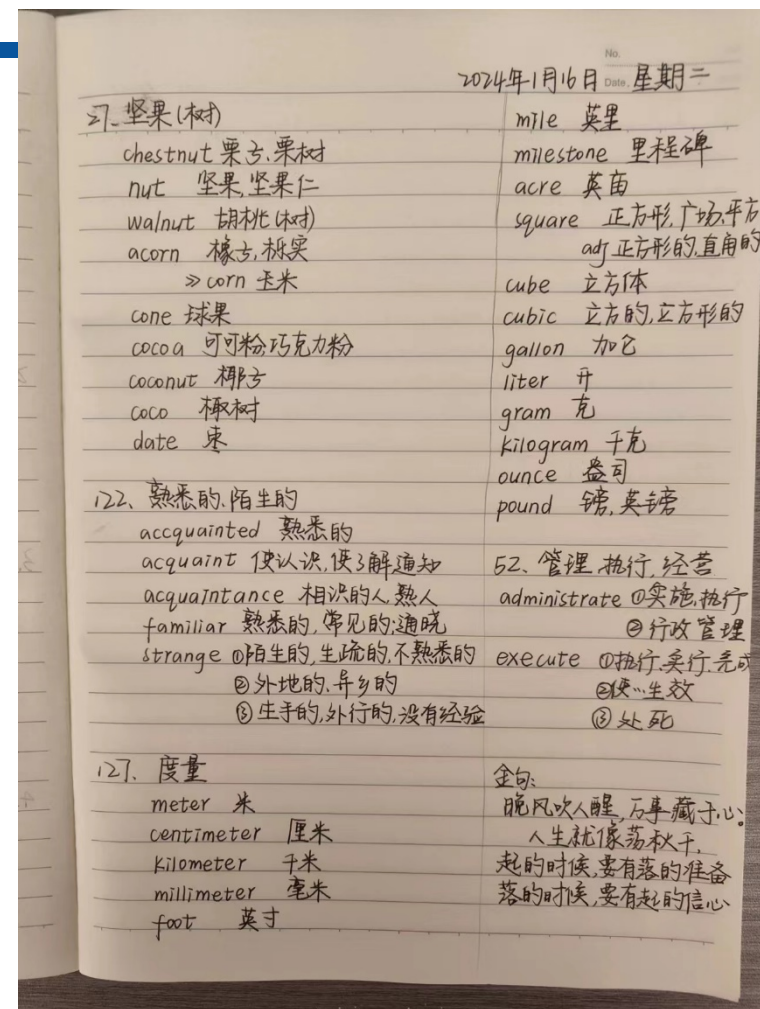 No.
2024年1月16日 Date. 星期二
27. 坚果(树)
chestnut 栗子、栗树
nut 坚果,坚果仁
walnut 胡桃(树)
acorn 橡子,栎实
» corn 玉米
cone 球果
cocoa 可可粉,巧克力粉
coconut 椰子
coco 椰树
date 枣
122、熟悉的、陌生的
accquainted 熟悉的
acquaint 使认识,使了解通知
acquaintance 相识的人,熟人
familiar 熟悉的,常见的;通晓
strange ①陌生的,生疏的,不熟悉的
②外地的、异乡的
③生手的,外行的,没有经验
127、度量
meter 米
centimeter 厘米
kilometer 千米
millimeter 毫米
foot 英寸
mile 英里
milestone 里程碑
acre 英亩
square 正方形,广场,平方
adj 正方形的,直角的
cube 立方体
cubic 立方的,立方形的
gallon 加仑
liter 升
gram 克
kilogram 千克
ounce 盎司
pound 镑,英镑
52、管理,执行,经营
administrate ①实施,执行
②行政管理
execute ①执行,实行,完成
②使…生效
③处死
金句:
晚风吹人醒,万事藏于心。
人生就像荡秋千,
起的时候,要有落的准备
落的时候,要有起的信心